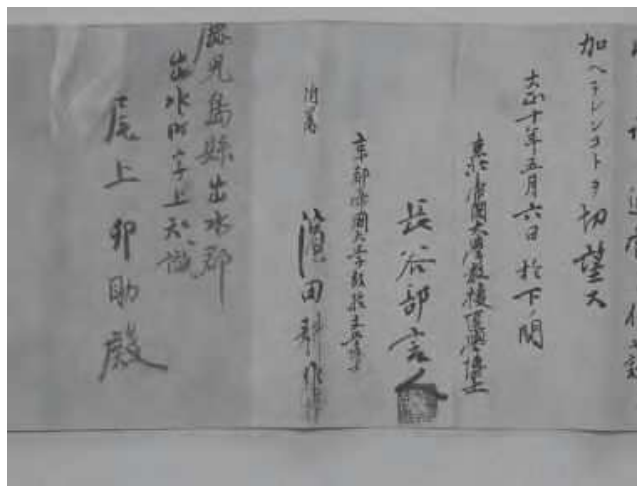 加ヘラレンコトヲ切望ス
大正十年五月六日於下ノ関
東北帝国大学教授医学博士
長谷部言人
京都帝国大学教授文学博士
濱田耕作
鹿児島縣出水郡
出水町字上知識
尾上卯助殿